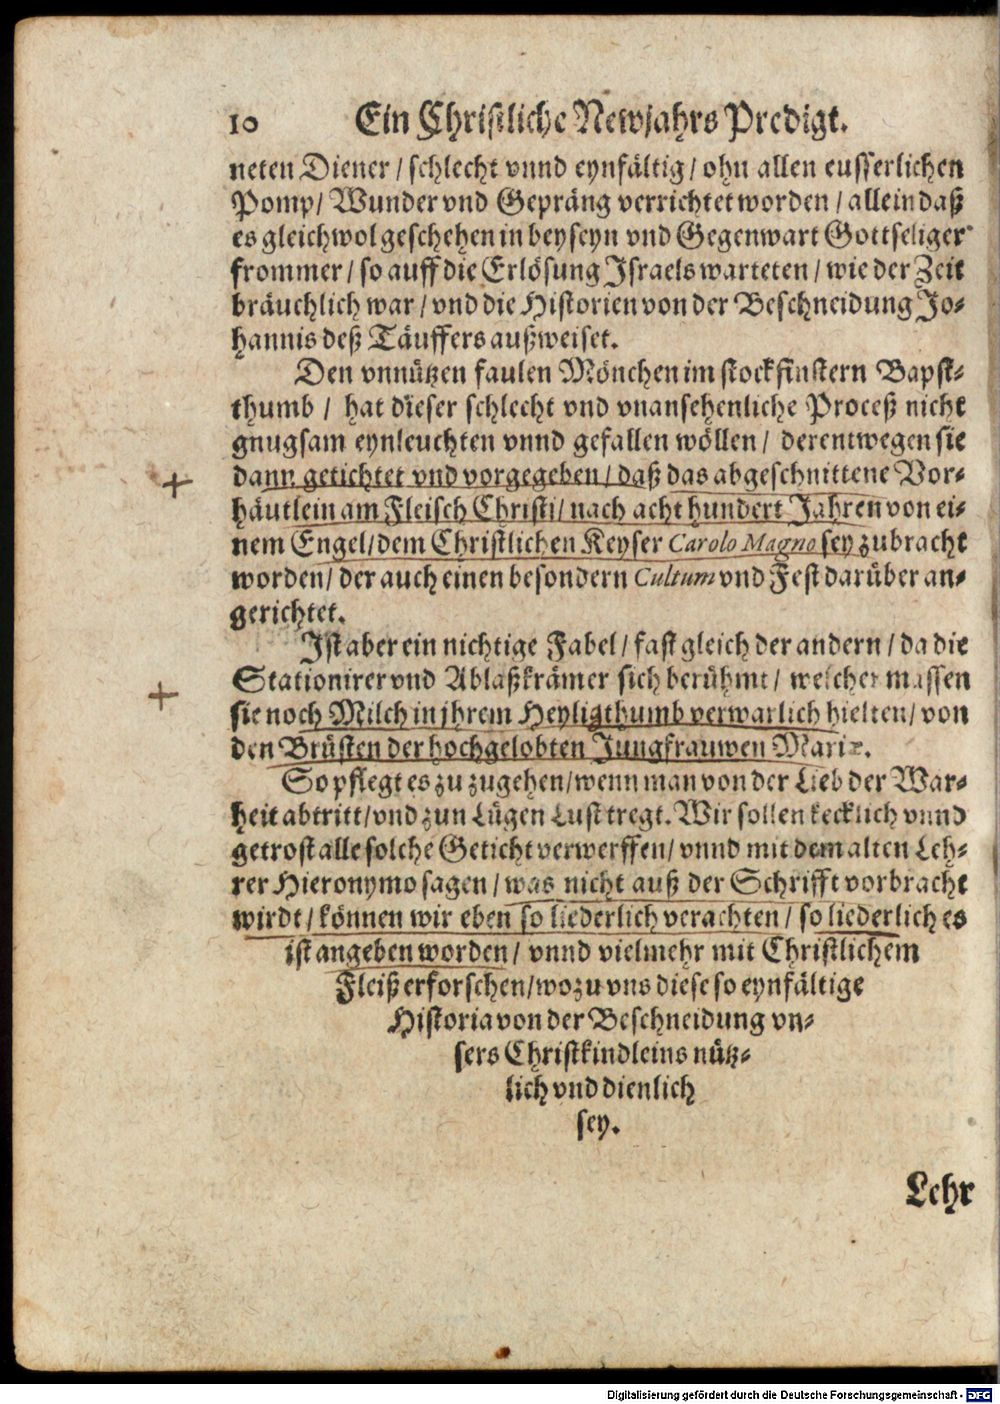 10 Ein Christliche Newjahrs Predigt.
neten Diener / schlecht vnnd eynfältig / ohn allen eusserlichen
Pomp / Wunder vnd Gepräng verrichtet worden / allein daß
es gleichwol geschehen in beyseyn vnd Gegenwart Gottseliger
frommer / so auff die Erlösung Israels warteten / wie der Zeit
bräuchlich war / vnd die Historien von der Beschneidung Jo-
hannis deß Täuffers außweiset.
Den vnnützen faulen Mönchen im stockfinstern Bapst-
thumb / hat dieser schlecht vnd vnansehenliche Proceß nicht
gnugsam eynleuchten vnnd gefallen wöllen / derentwegen sie
dann getichtet vnd vorgegeben / daß das abgeschnittene Vor-
häutlein am Fleisch Christi / nach acht hundert Jahren von ei-
nem Engel / dem Christlichen Keyser Carolo Magno sey zubracht
worden / der auch einen besondern Cultum vnd Fest darüber an-
gerichtet.
Ist aber ein nichtige Fabel / fast gleich der andern / da die
Stationirer vnd Ablaßkrämer sich berühmt / welcher massen
sie noch Milch in jhrem Heyligthumb verwarlich hielten / von
den Brüsten der hochgelobten Jungfrauwen Mariæ.
So pflegt es zu zugehen / wenn man von der Lieb der War-
heit abtritt / vnd zun Lügen Lust tregt. Wir sollen kecklich vnnd
getrost alle solche Geticht verwerffen / vnnd mit dem alten Leh-
rer Hieronymo sagen / was nicht auß der Schrifft vorbracht
wirdt / können wir eben so liederlich verachten / so liederlich es
ist angeben worden / vnnd vielmehr mit Christlichem
Fleiß erforschen / wozu vns diese so eynfältige
Historia von der Beschneidung vn-
sers Christkindleins nütz-
lich vnd dienlich
sey.
Lehr
Digitalisierung gefördert durch die Deutsche Forschungsgemeinschaft - DFG